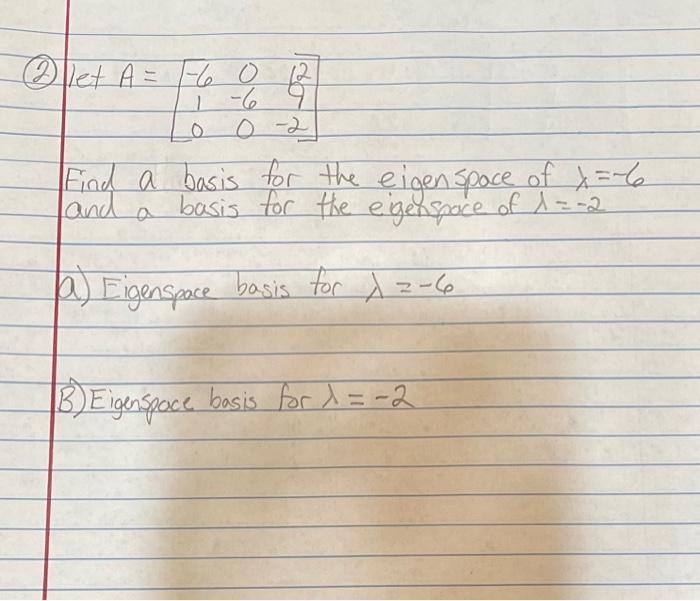 ② let A = [-6 0 12
1 -6 9
0 0 -2]
Find a basis for the eigenspace of λ=-6
and a basis for the eigenspace of λ=-2
a) Eigenspace basis for λ=-6
B) Eigenspace basis for λ=-2